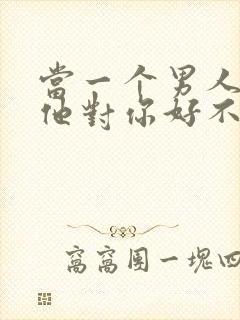 當一个男人
他對你好不
窩窩團一塊四